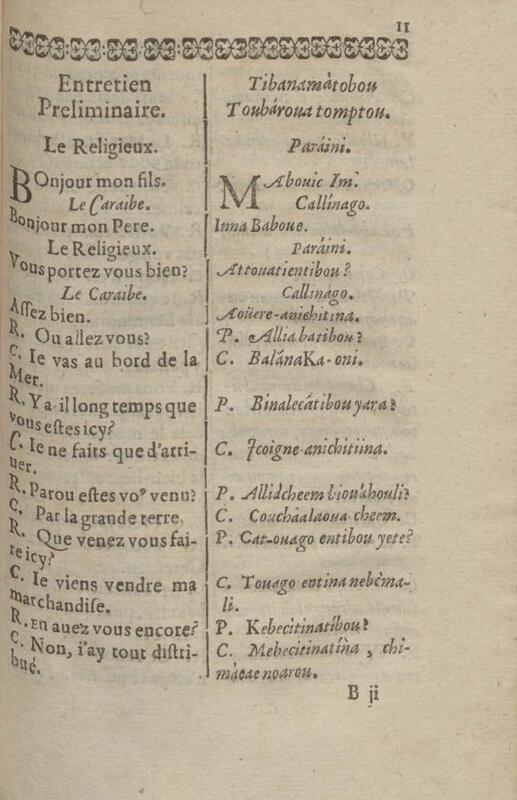 11
Entretien
Preliminaire.
Le Religieux.
BOnjour mon fils.
Le Caraibe.
Bonjour mon Pere.
Le Religieux.
Vous portez vous bien?
Le Caraibe.
Assez bien.
R. Ou allez vous?
C. Ie vas au bord de la
Mer.
R. Ya-il long temps que
vous estes icy?
C. Ie ne faits que d'arri-
uer.
R. Parou estes voꝰ venu?
C. Par la grande terre.
R. Que venez vous fai-
re icy?
C. Ie viens vendre ma
marchandise.
R. En auez vous encore?
C. Non, i'ay tout distri-
bué.
Tibanamàtobou
Toubároua tomptou.
Paráini.
MAbouic Im.
Callínago.
Inna Baboue.
Paráini.
Attouatientibou?
Callinago.
Aoüere-anichitina.
P. Allia batibou?
C. BalánaKa-oni.
P. Binalecátibou yara?
C. Icoigne-anichitiina.
P. Allidcheem biouáhouli?
C. Couchâalaoua-cheem.
P. Cat-ouago entibou yete?
C. Touago entina nebéma-
li.
P. Kebecitinatibou?
C. Mebecitinatína, chi-
mácae noarou.
B ij